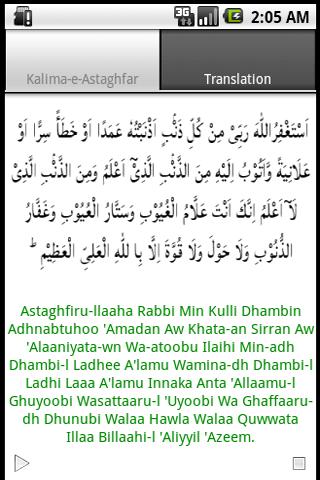 3G
2:05 AM
Kalima-e-Astaghfar
Translation
اَسْتَغْفِرُاللّٰهَ رَبِّىْ مِنْ كُلِّ ذَنْۢبٍ اَذْنَبْتُهٗ عَمَدًا اَوْ خَطَأً سِرًّا اَوْ
عَلَانِيَةً وَّاَتُوْبُ اِلَيْهِ مِنَ الذَّنْۢبِ الَّذِىْٓ اَعْلَمُ وَمِنَ الذَّنْۢبِ الَّذِىْ
لَآ اَعْلَمُ اِنَّكَ اَنْتَ عَلَّامُ الْغُيُوْبِ وَسَتَّارُ الْعُيُوْبِ وَغَفَّارُ
الذُّنُوْبِ وَلَا حَوْلَ وَلَا قُوَّةَ اِلَّا بِا للّٰهِ الْعَلِىِّ الْعَظِيْمِ ؕ
Astaghfiru-llaaha Rabbi Min Kulli Dhambin
Adhnabtuhoo 'Amadan Aw Khata-an Sirran Aw
'Alaaniyata-wn Wa-atoobu Ilaihi Min-adh
Dhambi-l Ladhee A'lamu Wamina-dh Dhambi-l
Ladhi Laaa A'lamu Innaka Anta 'Allaamu-l
Ghuyoobi Wasattaaru-l 'Uyoobi Wa Ghaffaaru-
dh Dhunubi Walaa Hawla Walaa Quwwata
Illaa Billaahi-l 'Aliyyil 'Azeem.